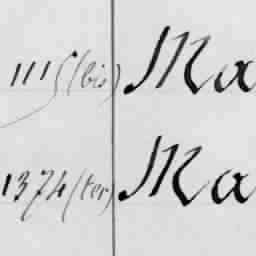 1115 (bis) Ma
1374 (ter) Ma